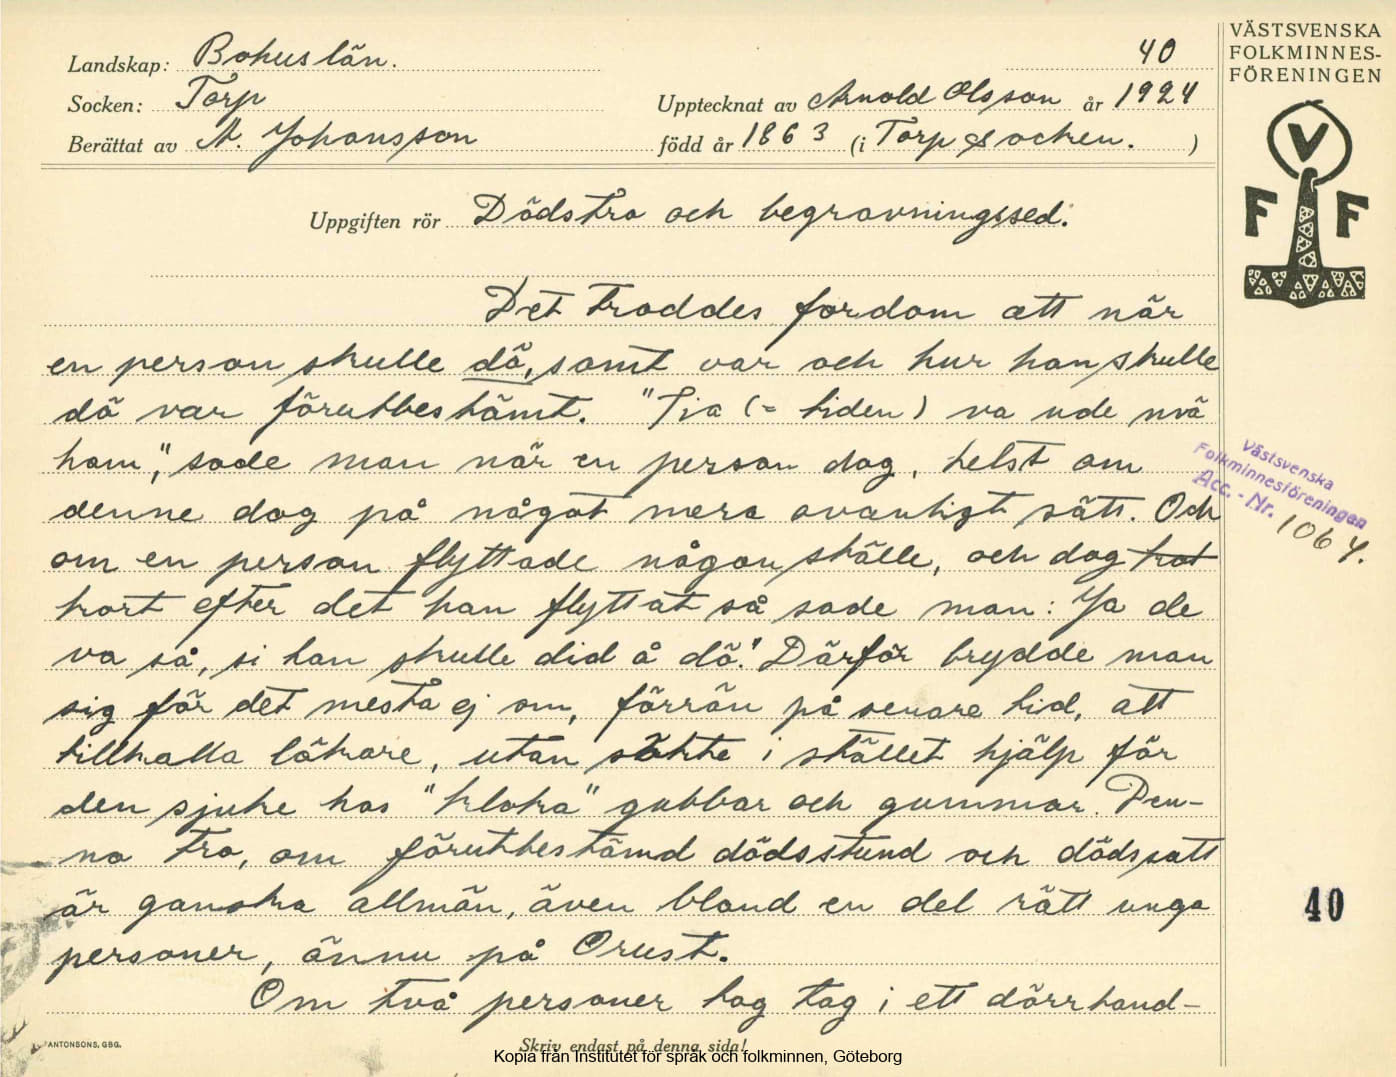 Landskap: Bohuslän.
40
Socken: Torp
Upptecknat av Arnold Olsson år 1924
Berättat av A. Johansson
född år 1863 (i Torp socken. )
Uppgiften rör Dödstro och begravningssed.
Det troddes fordom att när
en person skulle dö, samt var och hur han skulle
dö var förutbestämt. "Tia (= tiden) va ude mä
ham", sade man när en person dog, helst om
denne dog på något mera ovanligt sätt. Och
om en person flyttade någon ställe, och dog krot
kort efter det han flyttat så sade man: Ja de
va så, si han skulle did å dö." Därför brydde man
sig för det mesta ej om, förrän på senare tid, att
tillkalla läkare, utan sökte i stället hjälp för
den sjuke hos "kloka" gubbar och gummor. Den-
na tro, om förutbestämd dödsstund och dödssätt
är ganska allmän, även bland en del rätt unga
personer, ännu på Orust.
Om två personer tog tag i ett dörrhand-
ANTONSONS, GBG.
Skriv endast på denna sida!
Kopia från Institutet för språk och folkminnen, Göteborg
VÄSTSVENSKA
FOLKMINNES-
FÖRENINGEN
V
F F
Västsvenska
Folkminnesföreningen
Acc. - Nr. 1064.
40